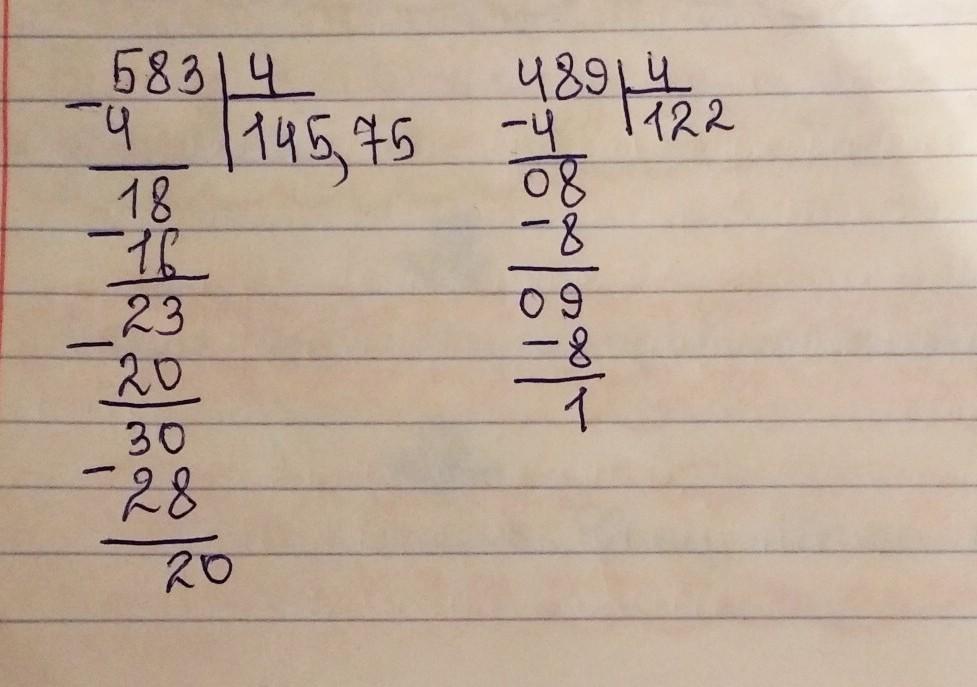 583 4
-4 145,75
18
-16
23
-20
30
-28
20
489 4
-4 122
08
-8
09
-8
1